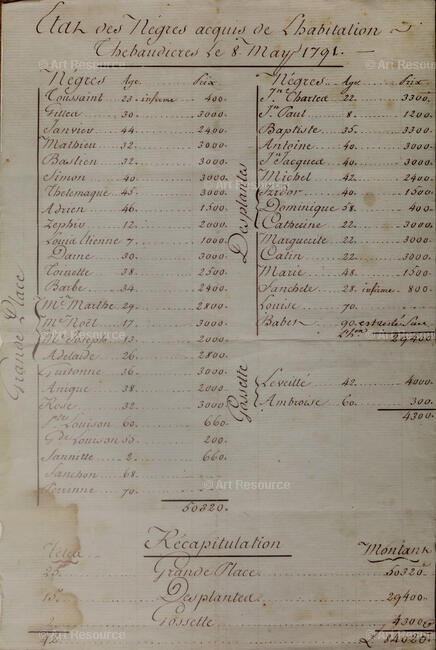 Etat des Négres acquis de L'habitation
Thebaudieres Le 8 May 1791.
Négres Age Prix
Toussaint 23 infirme 400
30 3000
Janvier 44 2400
Mathieu 32 3000
Bastien 32 3000
Simon 40 3000
Thelemaque 45 3000
Adrien 46 1500
Zephir 12 2000
Louis Etienne 7 1000
30 3000
Toinette 38 2500
Barbe 34 2400
Mie Marthe 29 2800
Mie Noël 17 3000
Mie Joseph 13 2000
Adelaide 26 2800
36 3000
Anique 38 2000
Rose 32 3000
Louison 60 660
Gde Louison 50 200
Jannitte 2 660
Sanchon 68
Perrenne 70
50320
Grande Place
Négres Age Prix
Jn Charles 22 3300
Jn Paul 8 1200
Baptiste 35 3300
Antoine 40 3000
Jn Jacques 40 3000
Michel 42 2400
Izidor 40 1500
Dominique 58 400
Catherine 22 3000
Marguerite 22 3000
Catin 22 3000
Marie 48 1500
Sanchete 28 infirme 800
Louise 70
Babet 90 est restée Sur
L'hon 29400
Desplantes
Leveillé 42 4000
Ambroise 60 300
4300
Gossette
Récapitulation
Tetes Montant
25 Grande Place 50320
15 Desplantes 29400
2 Gossette 4300
42 £ 84020
© Art Resource